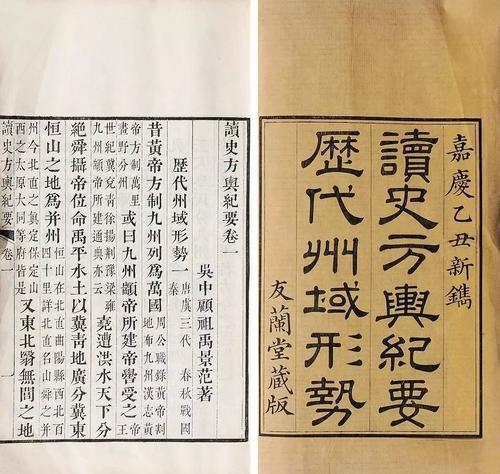 嘉慶乙丑新鐫
讀史方輿紀要
歷代州域形勢
友蘭堂藏版
讀史方輿紀要卷一
吳中顧祖禹景范著
歷代州域形勢一 唐虞三代 春秋戰國 秦
昔黃帝方制九州列爲萬國 周公職錄黃帝割地布九州漢志黃
帝方制萬里畫野分州 或曰九州顓帝所建帝嚳受之 王
世紀冀兗青徐揚荊豫梁雍九州顓帝所建通典亦云 堯遭洪水天下分
絕舜攝帝位命禹平水土以冀青地廣分冀東
恒山之地爲并州 恒山在北直曲陽縣西北百四十里詳北直名山舜之并
州今北直之眞定保定山西之太原大同等府皆是 又東北醫無閭之地
讀史方輿紀要 卷一 一